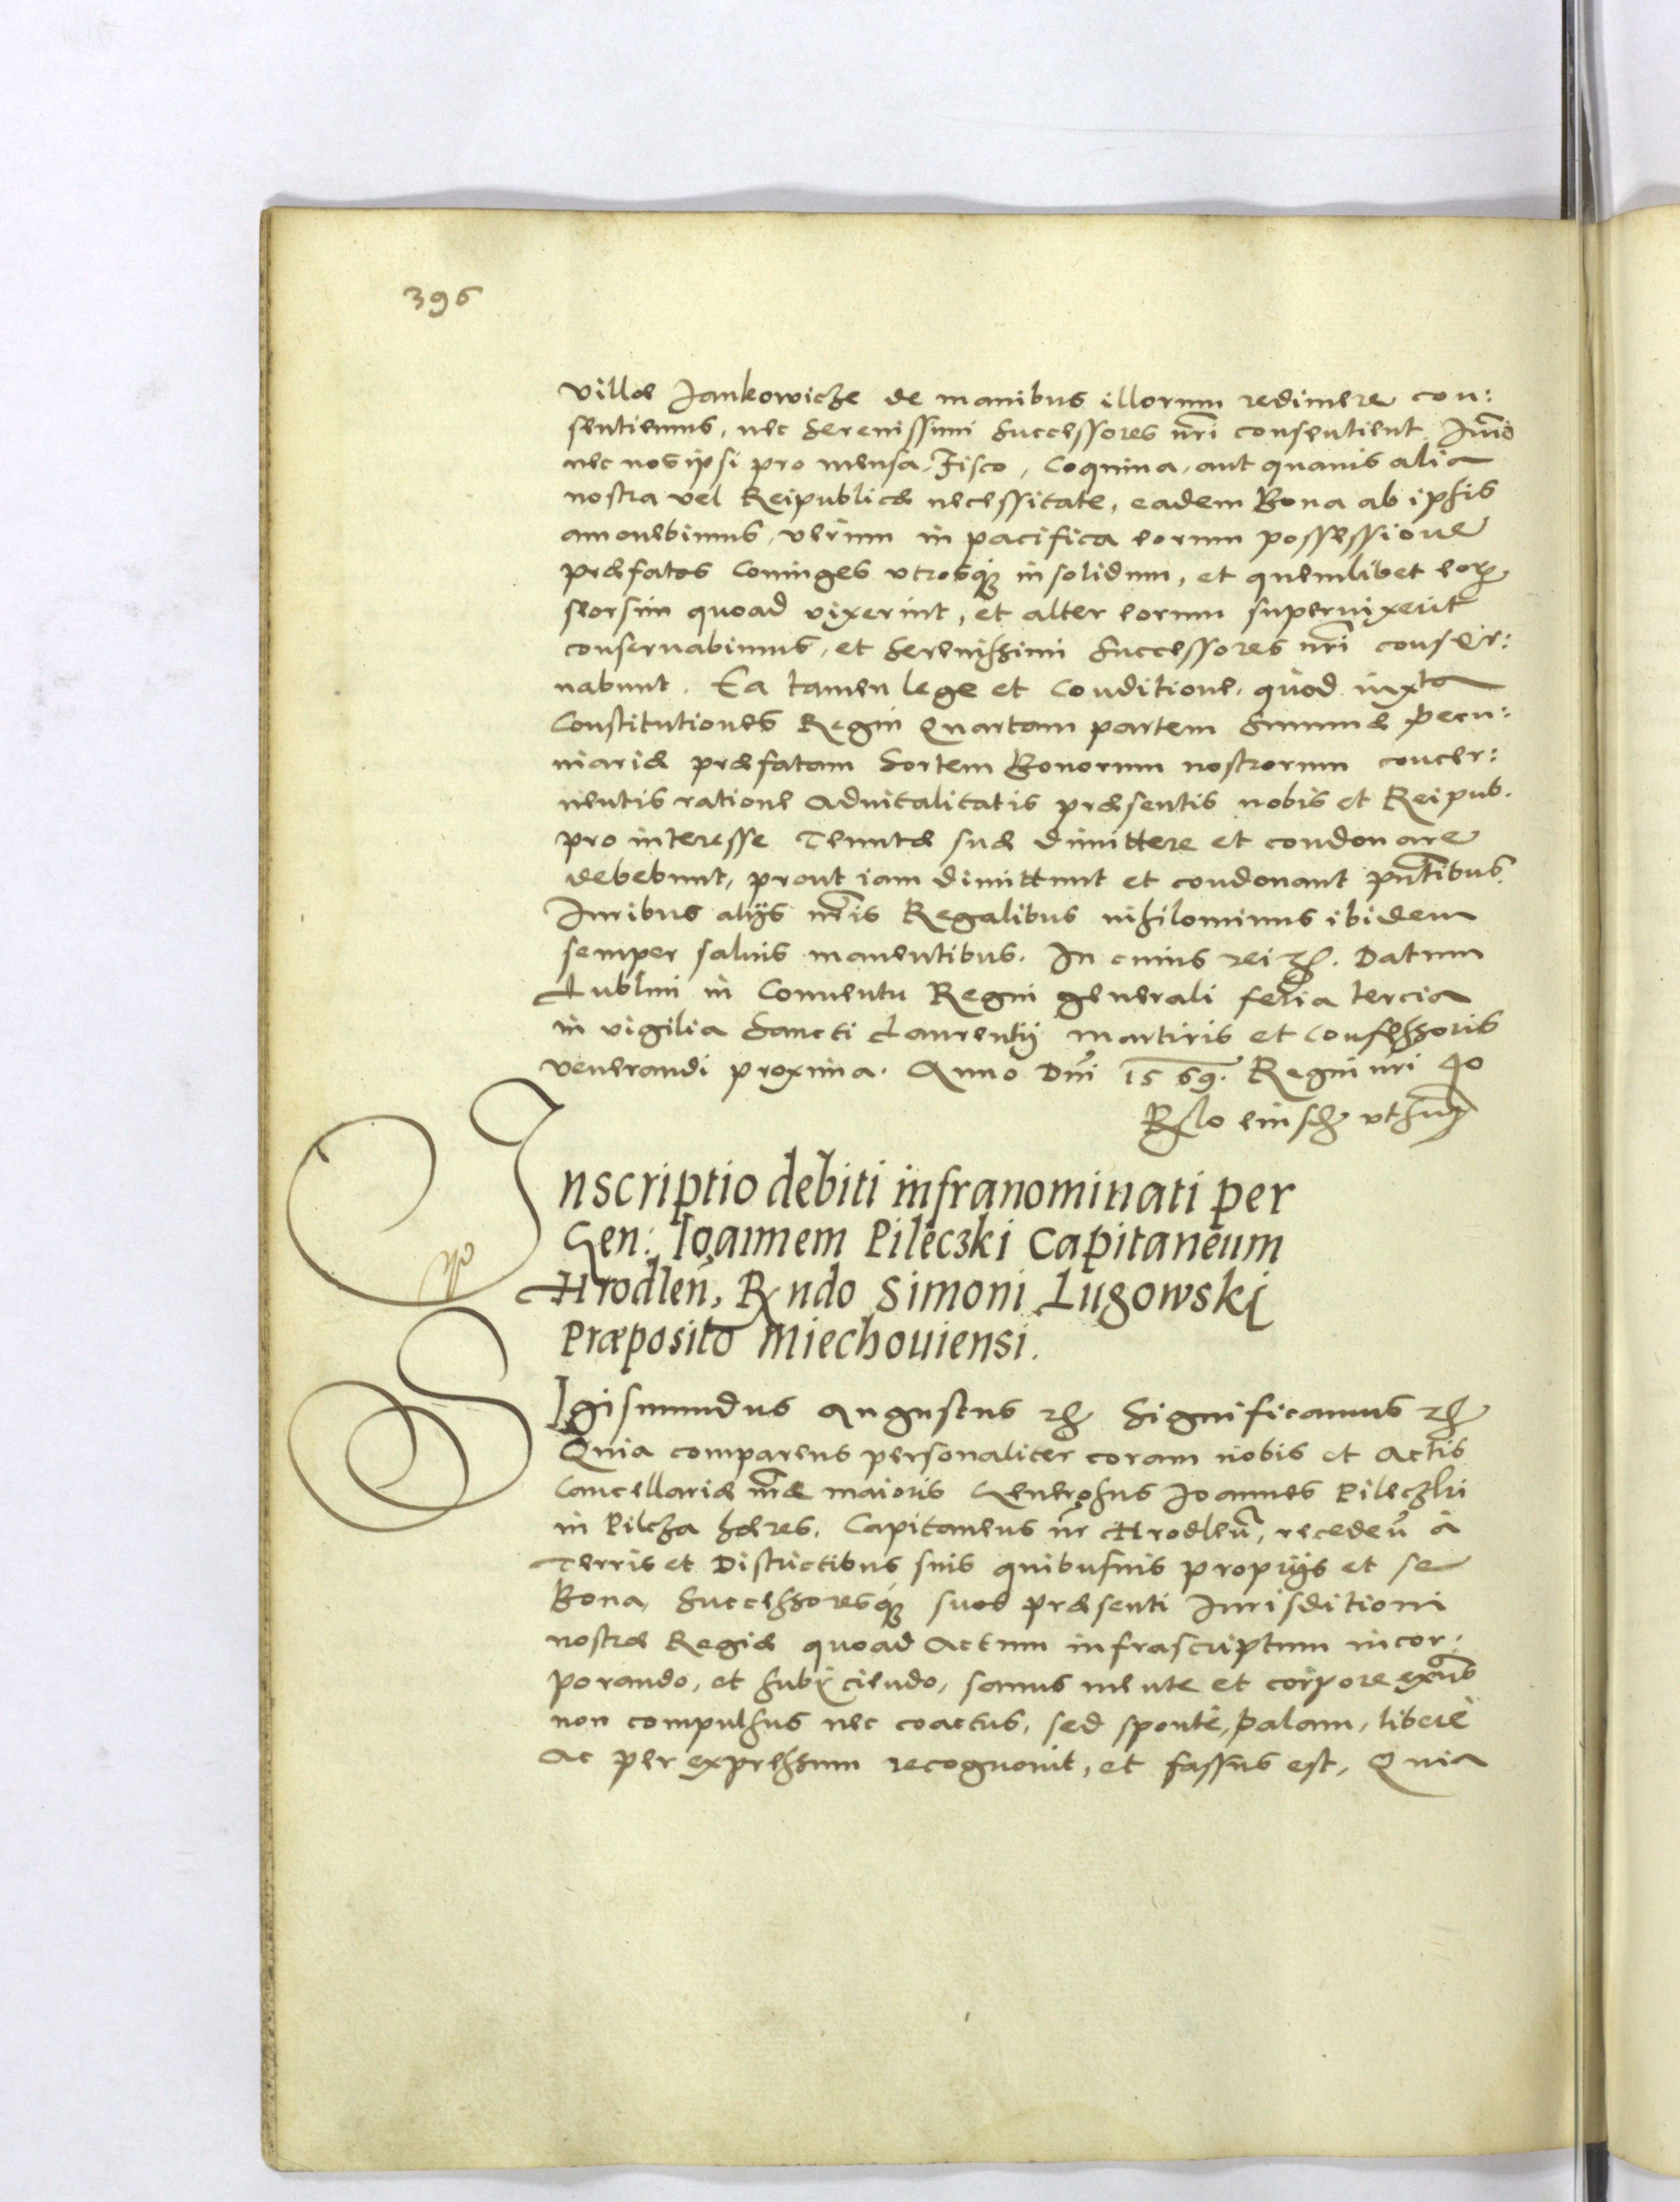 396
villæ Jankowicze de manibus illorum redimere con:
sentiemus, nec Serenissimi Successores nr̃i consentient. Imò
nec nos ipsi pro mensa, Fisco, Coquina, aut quauis alia
nostra vel Reipublicæ necessitate, eadem Bona ab ipsis
amouebimus, verum in pacifica eorum possessione
præfatos Coniuges vtrosq3 in solidum, et quemlibet eorꝝ
seorsim quoad vixerint, et alter eorum superuixerit
conseruabimus, et Serenissimi Successores nr̃i conser:
uabunt. Ea tamen lege et Conditione, quòd iuxta
Constitutiones Regni Quartam partem Summæ pecu:
niariæ præfatam Sortem Bonorum nostrorum concer:
nentis ratione aduitalitatis præsentis nobis et Reipub.
pro interesse Tenutæ suæ dimittere et condonare
debebunt, prout iam dimittunt et condonant pñtibus.
Iuribus alijs nr̃is Regalibus nihilominus ibidem
semper saluis manentibus. In cuius rei &. Datum
Lublini in Conuentu Regni generali feria tercia
in vigilia Sancti Laurentij Martiris et Confessoris
venerandi proxima. Anno Dñi 1569. Regni nr̃i 40
Rlo eiusdē vt su&#773;
Inscriptio debiti infranominati per
Gen: Ioannem Pileczki Capitaneum
Hrodleñ, Rndo Simoni Lugowskj
Præposito Miechouiensi.
SIgismundus Augustus &c Significamus &c
Quia comparens personaliter coram nobis et Actis
Cancellariæ nr̃æ maioris Generosus Joannes Pileczki
in Pilcza hæres, Capitaneus nr̃ Hrodleñ, recedeñ à
Terris et Districtibus suis quibusuis proprijs et se
Bona, Successoresq3 suos præsenti Iurisditioni
nostræ Regiæ quoad Actum infrascriptum incor:
porando, et subijciendo, sanus mente et corpore exñs
non compulsus nec coactus, sed spontè, palam, liberè
Ac per expressum recognouit, et fassus est, Quia